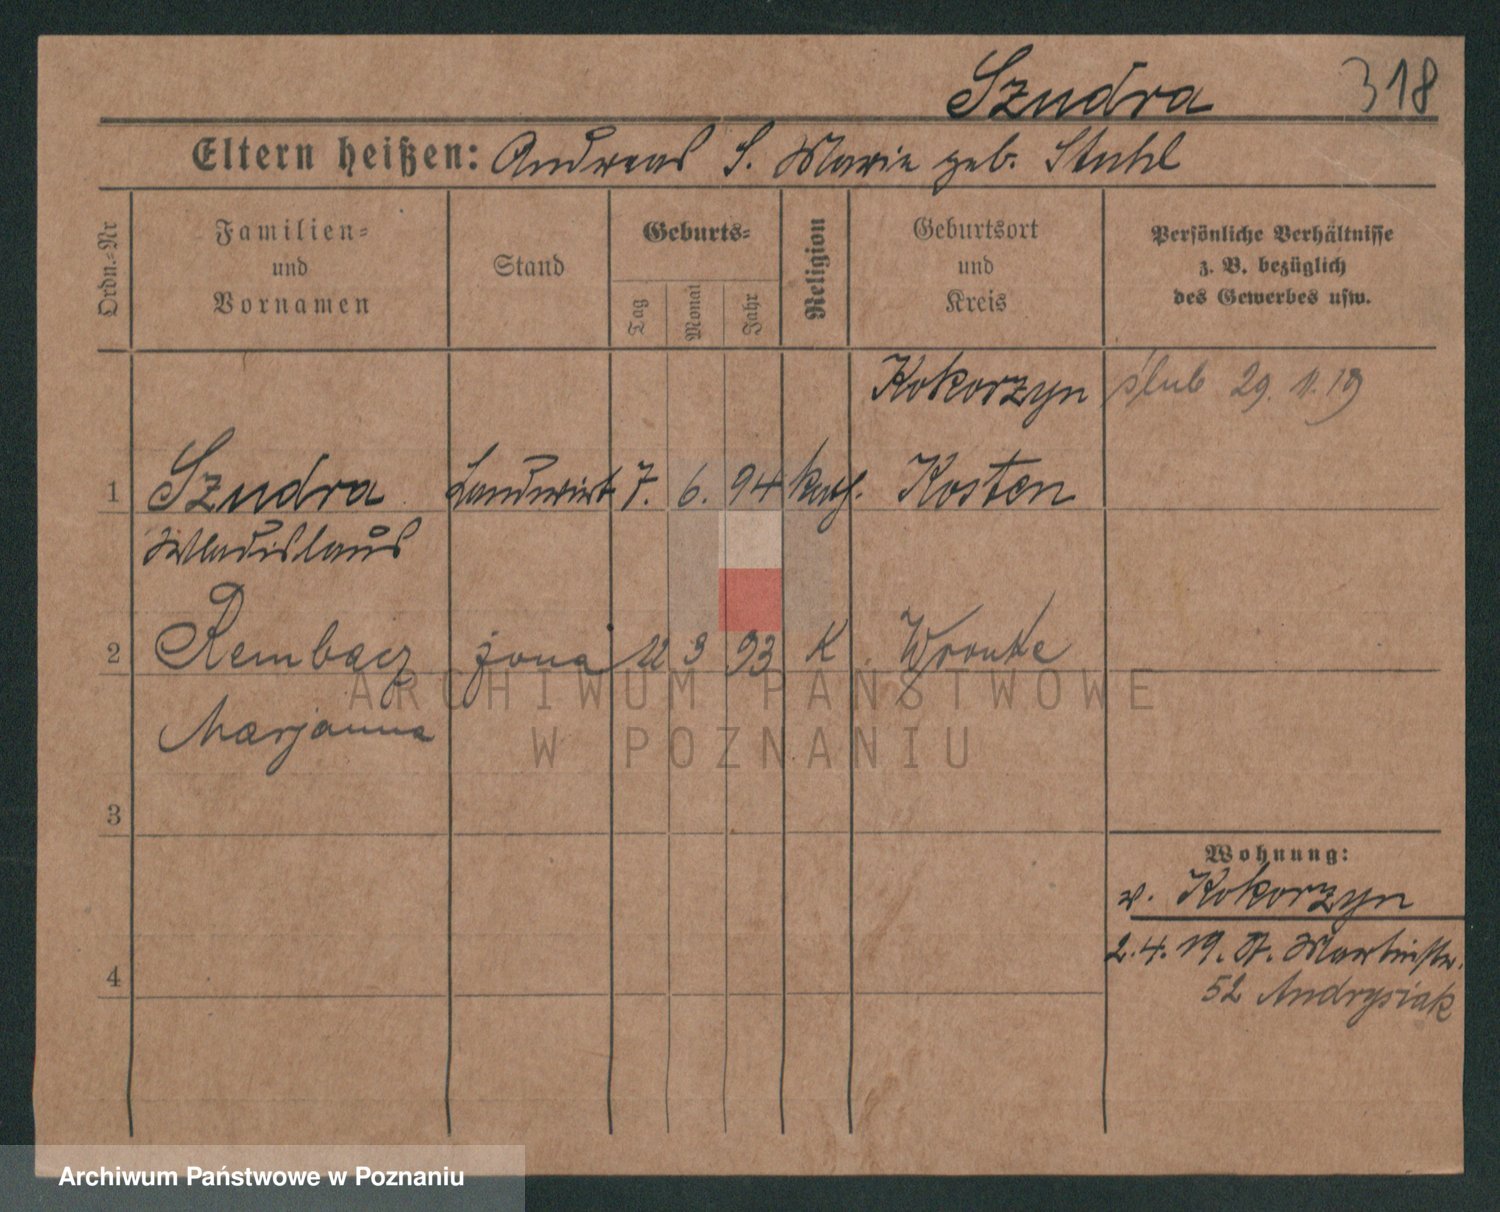 Szudra 318
Eltern heißen: Andreas S. Marie geb. Stuhl
Ordn.-Nr
Familien-
und
Vornamen
Stand
Geburts-
Tag
Monat
Jahr
Religion
Geburtsort
und
Kreis
Persönliche Verhältnisse
z. B. bezüglich
des Gewerbes usw.
Kokorzyn ślub 29. 11. 19
1 Szudra Landwirt 7. 6. 94 kath. Kosten
Wladislaus
2 Rembacz żona 12 3 93 K Wronke
Marjanna
ARCHIWUM PAŃSTWOWE
W POZNANIU
3
Wohnung:
v. Kokorzyn
2. 4. 19. Martinstr.
4
52 Andrysiak
Archiwum Państwowe w Poznaniu